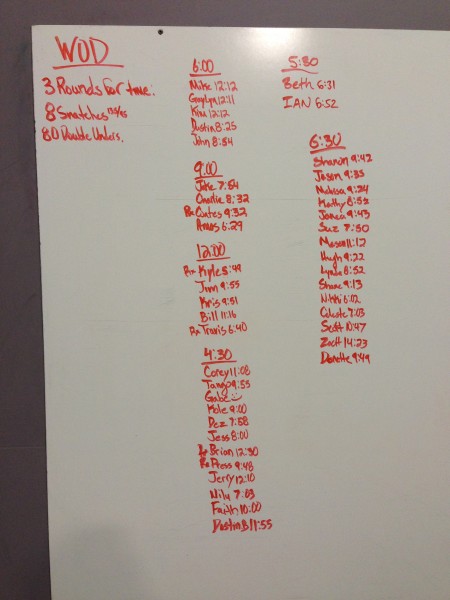 WOD
3 Rounds for time:
8 Snatches 135/95
80 Double Unders.
6:00
Mike 12:12
Graylyn 12:11
Kim 12:12
Dustin 8:25
John 8:54
9:00
Jake 7:54
8:32
Rx Coates 9:32
Amos 6:29
12:00
Rx Kyle 5:49
Jim 9:55
Kris 9:51
Bill 11:16
Rx Travis 6:40
4:30
Corey 11:08
Tango 9:55
Gabe
Kole 9:00
Dez 7:58
Jess 8:00
Rx Brian 12:30
Rx Press 9:48
Jerry 12:10
Nilu 7:03
Faith 10:00
Dustin B 11:55
5:30
Beth 6:31
IAN 6:52
6:30
Sharon 9:42
Jason 9:35
Melisa 9:24
Kathy 8:52
Janea 9:43
Suz 7:50
Mason 11:12
Hugh 9:22
Lynne 8:52
Shane 9:13
Nikki 6:02
Celeste 7:03
Scott 10:47
Zach 14:23
Danette 9:49